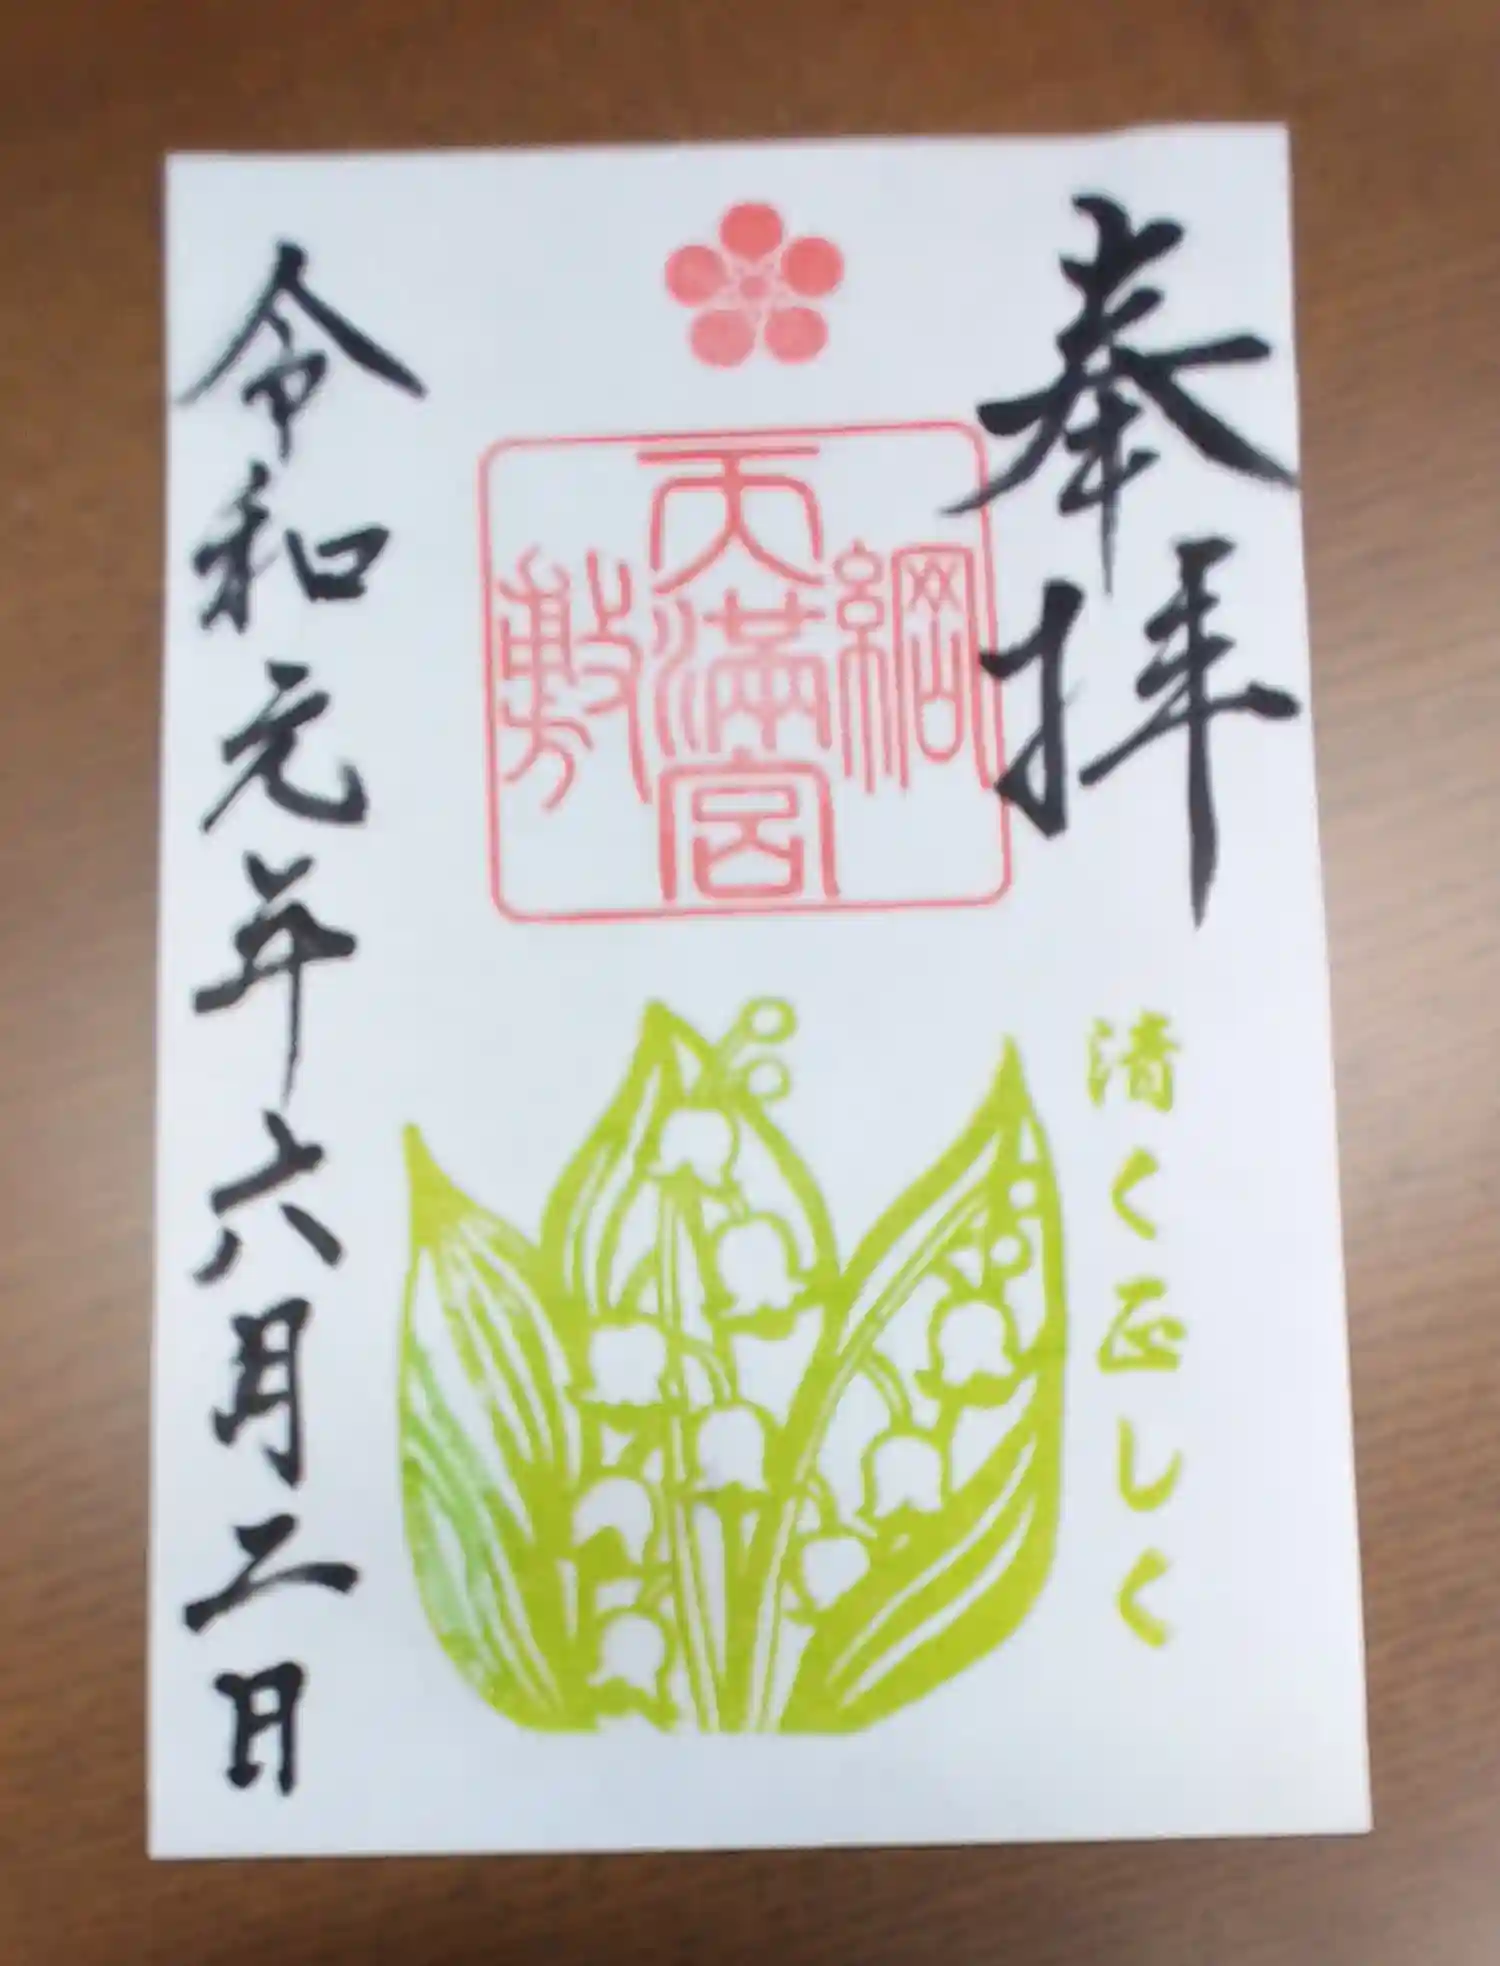 奉拝
綱敷
天満宮
清く正しく
令和元年六月二日